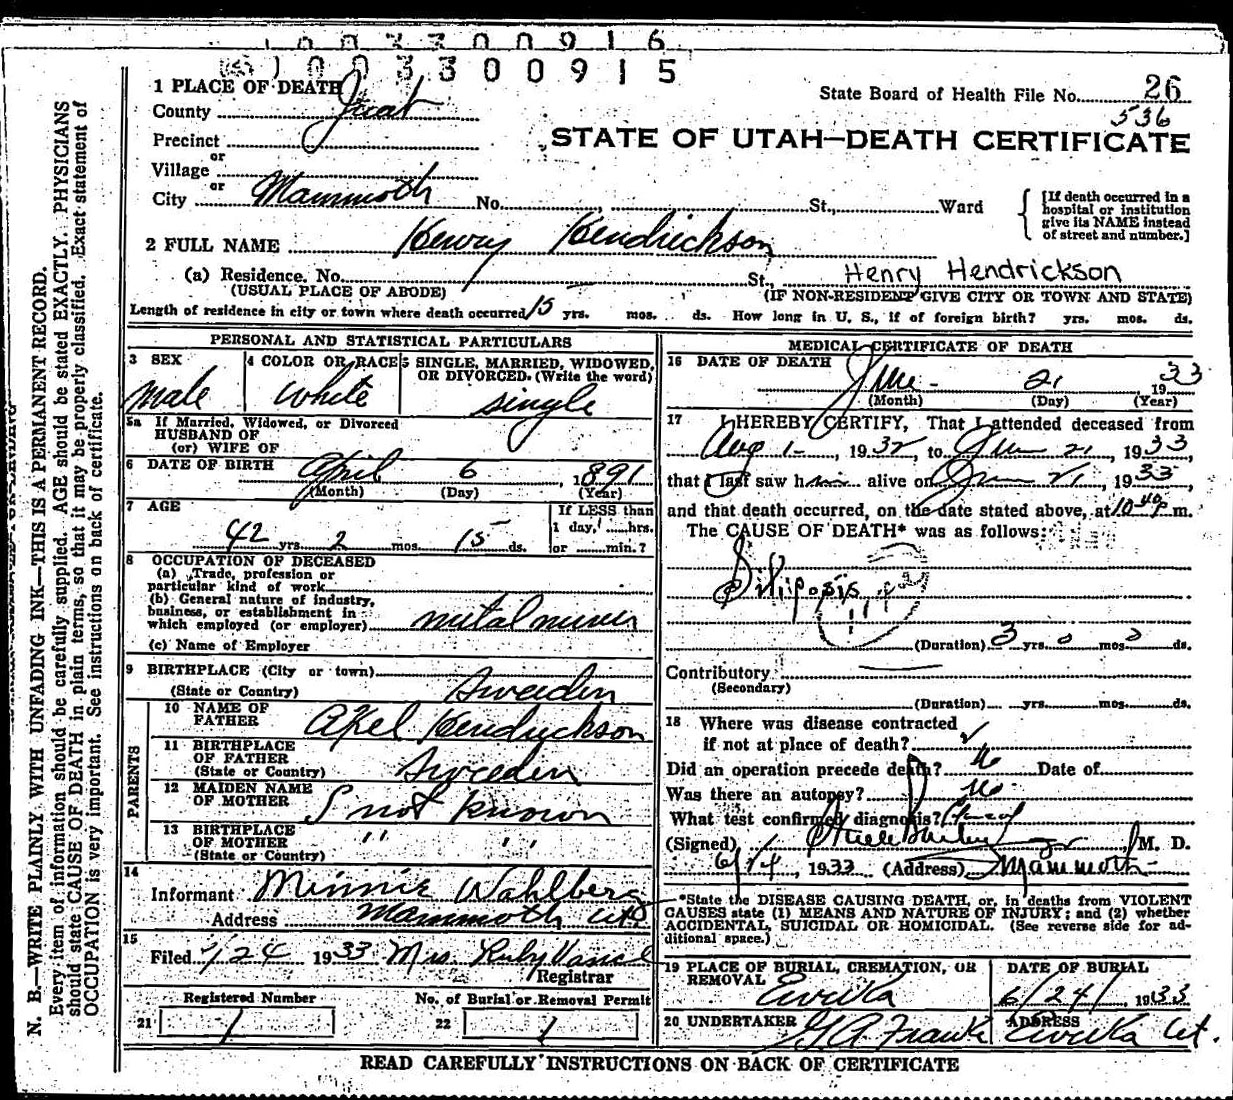 1003300916
1003300915
1 PLACE OF DEATH
County Juab
State Board of Health File No. 26
536
Precinct
STATE OF UTAH—DEATH CERTIFICATE
or
Village
or
City Mammoth No. St., Ward
[If death occurred in a
hospital or institution
give its NAME instead
of street and number.]
2 FULL NAME Henry Hendrickson
(a) Residence. No. St., Henry Hendrickson
(USUAL PLACE OF ABODE) (IF NON-RESIDENT GIVE CITY OR TOWN AND STATE)
Length of residence in city or town where death occurred 15 yrs. mos. ds. How long in U. S., if of foreign birth? yrs. mos. ds.
PERSONAL AND STATISTICAL PARTICULARS
3 SEX
male
4 COLOR OR RACE
white
5 SINGLE, MARRIED, WIDOWED,
OR DIVORCED. (Write the word)
single
5a If Married, Widowed, or Divorced
HUSBAND OF
(or) WIFE OF
6 DATE OF BIRTH April 6, 1891
(Month) (Day) (Year)
7 AGE
42 yrs. 2 mos. 15 ds.
If LESS than
1 day, hrs.
or min.?
8 OCCUPATION OF DECEASED
(a) Trade, profession or
particular kind of work
(b) General nature of industry,
business, or establishment in
which employed (or employer) metal miner
(c) Name of Employer
9 BIRTHPLACE (City or town)
(State or Country) Sweeden
PARENTS
10 NAME OF
FATHER Axel Hendrickson
11 BIRTHPLACE
OF FATHER
(State or Country) Sweeden
12 MAIDEN NAME
OF MOTHER not known
13 BIRTHPLACE
OF MOTHER " "
(State or Country)
14
Informant Minnie Wahlberg
Address Mammoth Utah
15
Filed 6/24 1933 Mrs. Ruby
Registrar
Registered Number
21 1
No. of Burial or Removal Permit
22 1
MEDICAL CERTIFICATE OF DEATH
16 DATE OF DEATH
June 21 1933
(Month) (Day) (Year)
17 I HEREBY CERTIFY, That I attended deceased from
Aug 1 -, 1932, to June 21, 1933,
that I last saw him alive on June 21, 1933,
and that death occurred, on the date stated above, at 10 40 P.m.
The CAUSE OF DEATH* was as follows:
Silicosis
(Duration) 3 yrs. 0 mos. 0 ds.
Contributory
(Secondary)
(Duration) yrs. mos. ds.
18 Where was disease contracted
if not at place of death?
Did an operation precede death? No Date of
Was there an autopsy? No
What test confirmed diagnosis?
(Signed) Steele Bailey Jr M. D.
6/24, 1933 (Address) Mammoth
*State the DISEASE CAUSING DEATH, or, in deaths from VIOLENT
CAUSES state (1) MEANS AND NATURE OF INJURY; and (2) whether
ACCIDENTAL, SUICIDAL OR HOMICIDAL. (See reverse side for ad-
ditional space.)
19 PLACE OF BURIAL, CREMATION, OR
REMOVAL
Eureka
DATE OF BURIAL
6/24/1933
20 UNDERTAKER
G A Franke
ADDRESS
Eureka Ut.
READ CAREFULLY INSTRUCTIONS ON BACK OF CERTIFICATE
N. B.—WRITE PLAINLY WITH UNFADING INK—THIS IS A PERMANENT RECORD.
Every item of information should be carefully supplied. AGE should be stated EXACTLY. PHYSICIANS
should state CAUSE OF DEATH in plain terms, so that it may be properly classified. Exact statement of
OCCUPATION is very important. See instructions on back of certificate.